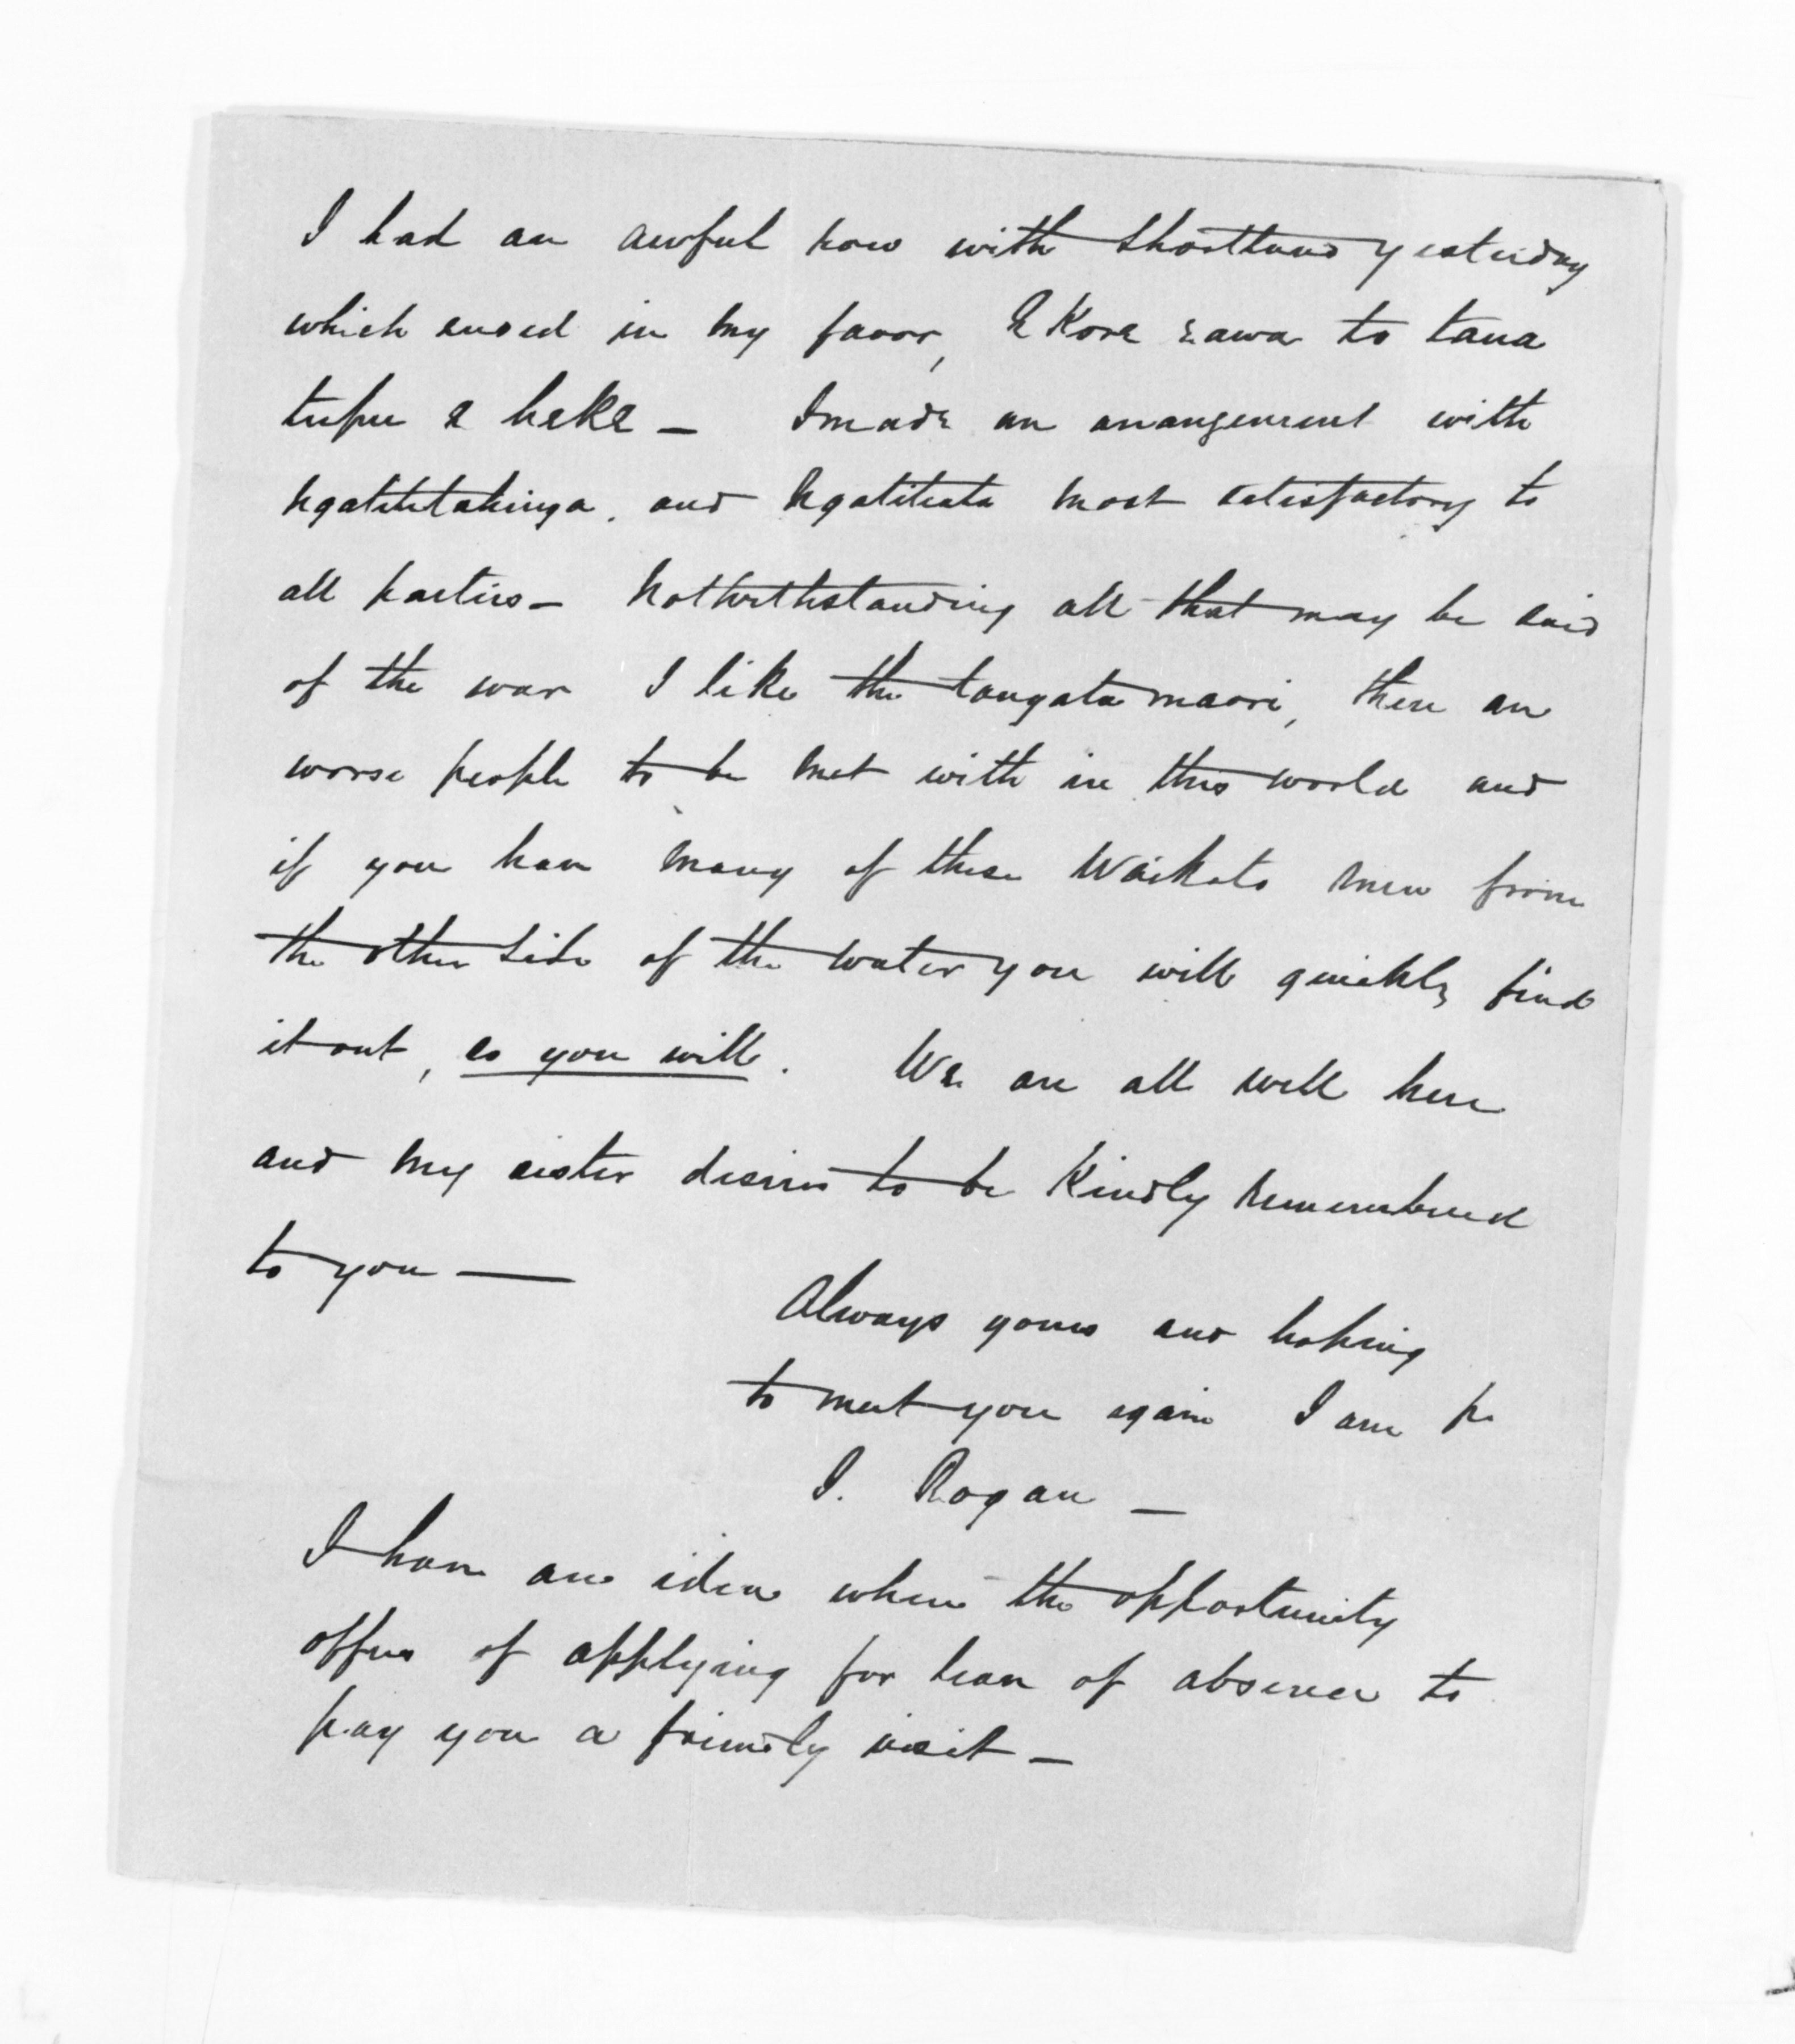 I had an awful row with Shortland yesterday
which ended in my favor, E Kore rawa to taua
tupu e heke —  I made an arrangement with
Ngatitetahinga. and Ngatitiata most satisfactory to
all parties — Notwithstanding all that may be said
of the war I like the tangata maori, there are
worse people to be met with in this world and
if you have many of these Waikato men from
the other side of the water you will quickly find
it out, so you will. We are all well here
and my sister desires to be Kindly remembered
to you —
Always yours and hoping
to meet you again I am
J. Rogan —
I have an idea when the opportunity
offers of applying for leave of absence to
pay you a friendly visit —